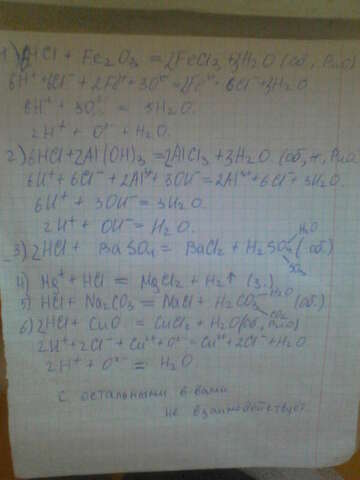 1) 6HCl + Fe2O3 = 2FeCl3 + 3H2O (об., РИО)
6H⁺ + 6Cl⁻ + 2Fe³⁺ + 3O²⁻ = 2Fe³⁺ + 6Cl⁻ + 3H2O
6H⁺ + 3O²⁻ = 3H2O.
2H⁺ + O²⁻ = H2O.
2) 6HCl + 2Al(OH)3 = 2AlCl3 + 3H2O (об., н., РИО)
6H⁺ + 6Cl⁻ + 2Al³⁺ + 3OH⁻ = 2Al³⁺ + 6Cl⁻ + 3H2O.
6H⁺ + 3OH⁻ = 3H2O.
2H⁺ + OH⁻ = H2O.
H2O
3) 2HCl + BaSO4 = BaCl2 + H2SO4 (об.)
SO3
4) Mg⁺ + HCl = MgCl2 + H2↑ (з.)
5) HCl + Na2CO3 = NaCl + H2CO3 H2O (об.)
CO2
6) 2HCl + CuO = CuCl2 + H2O (об., РИО)
2H⁺ + 2Cl⁻ + Cu²⁺ + O²⁻ = Cu²⁺ + 2Cl⁻ + H2O
2H⁺ + O²⁻ = H2O
с остальными в-вами
не взаимодействует.